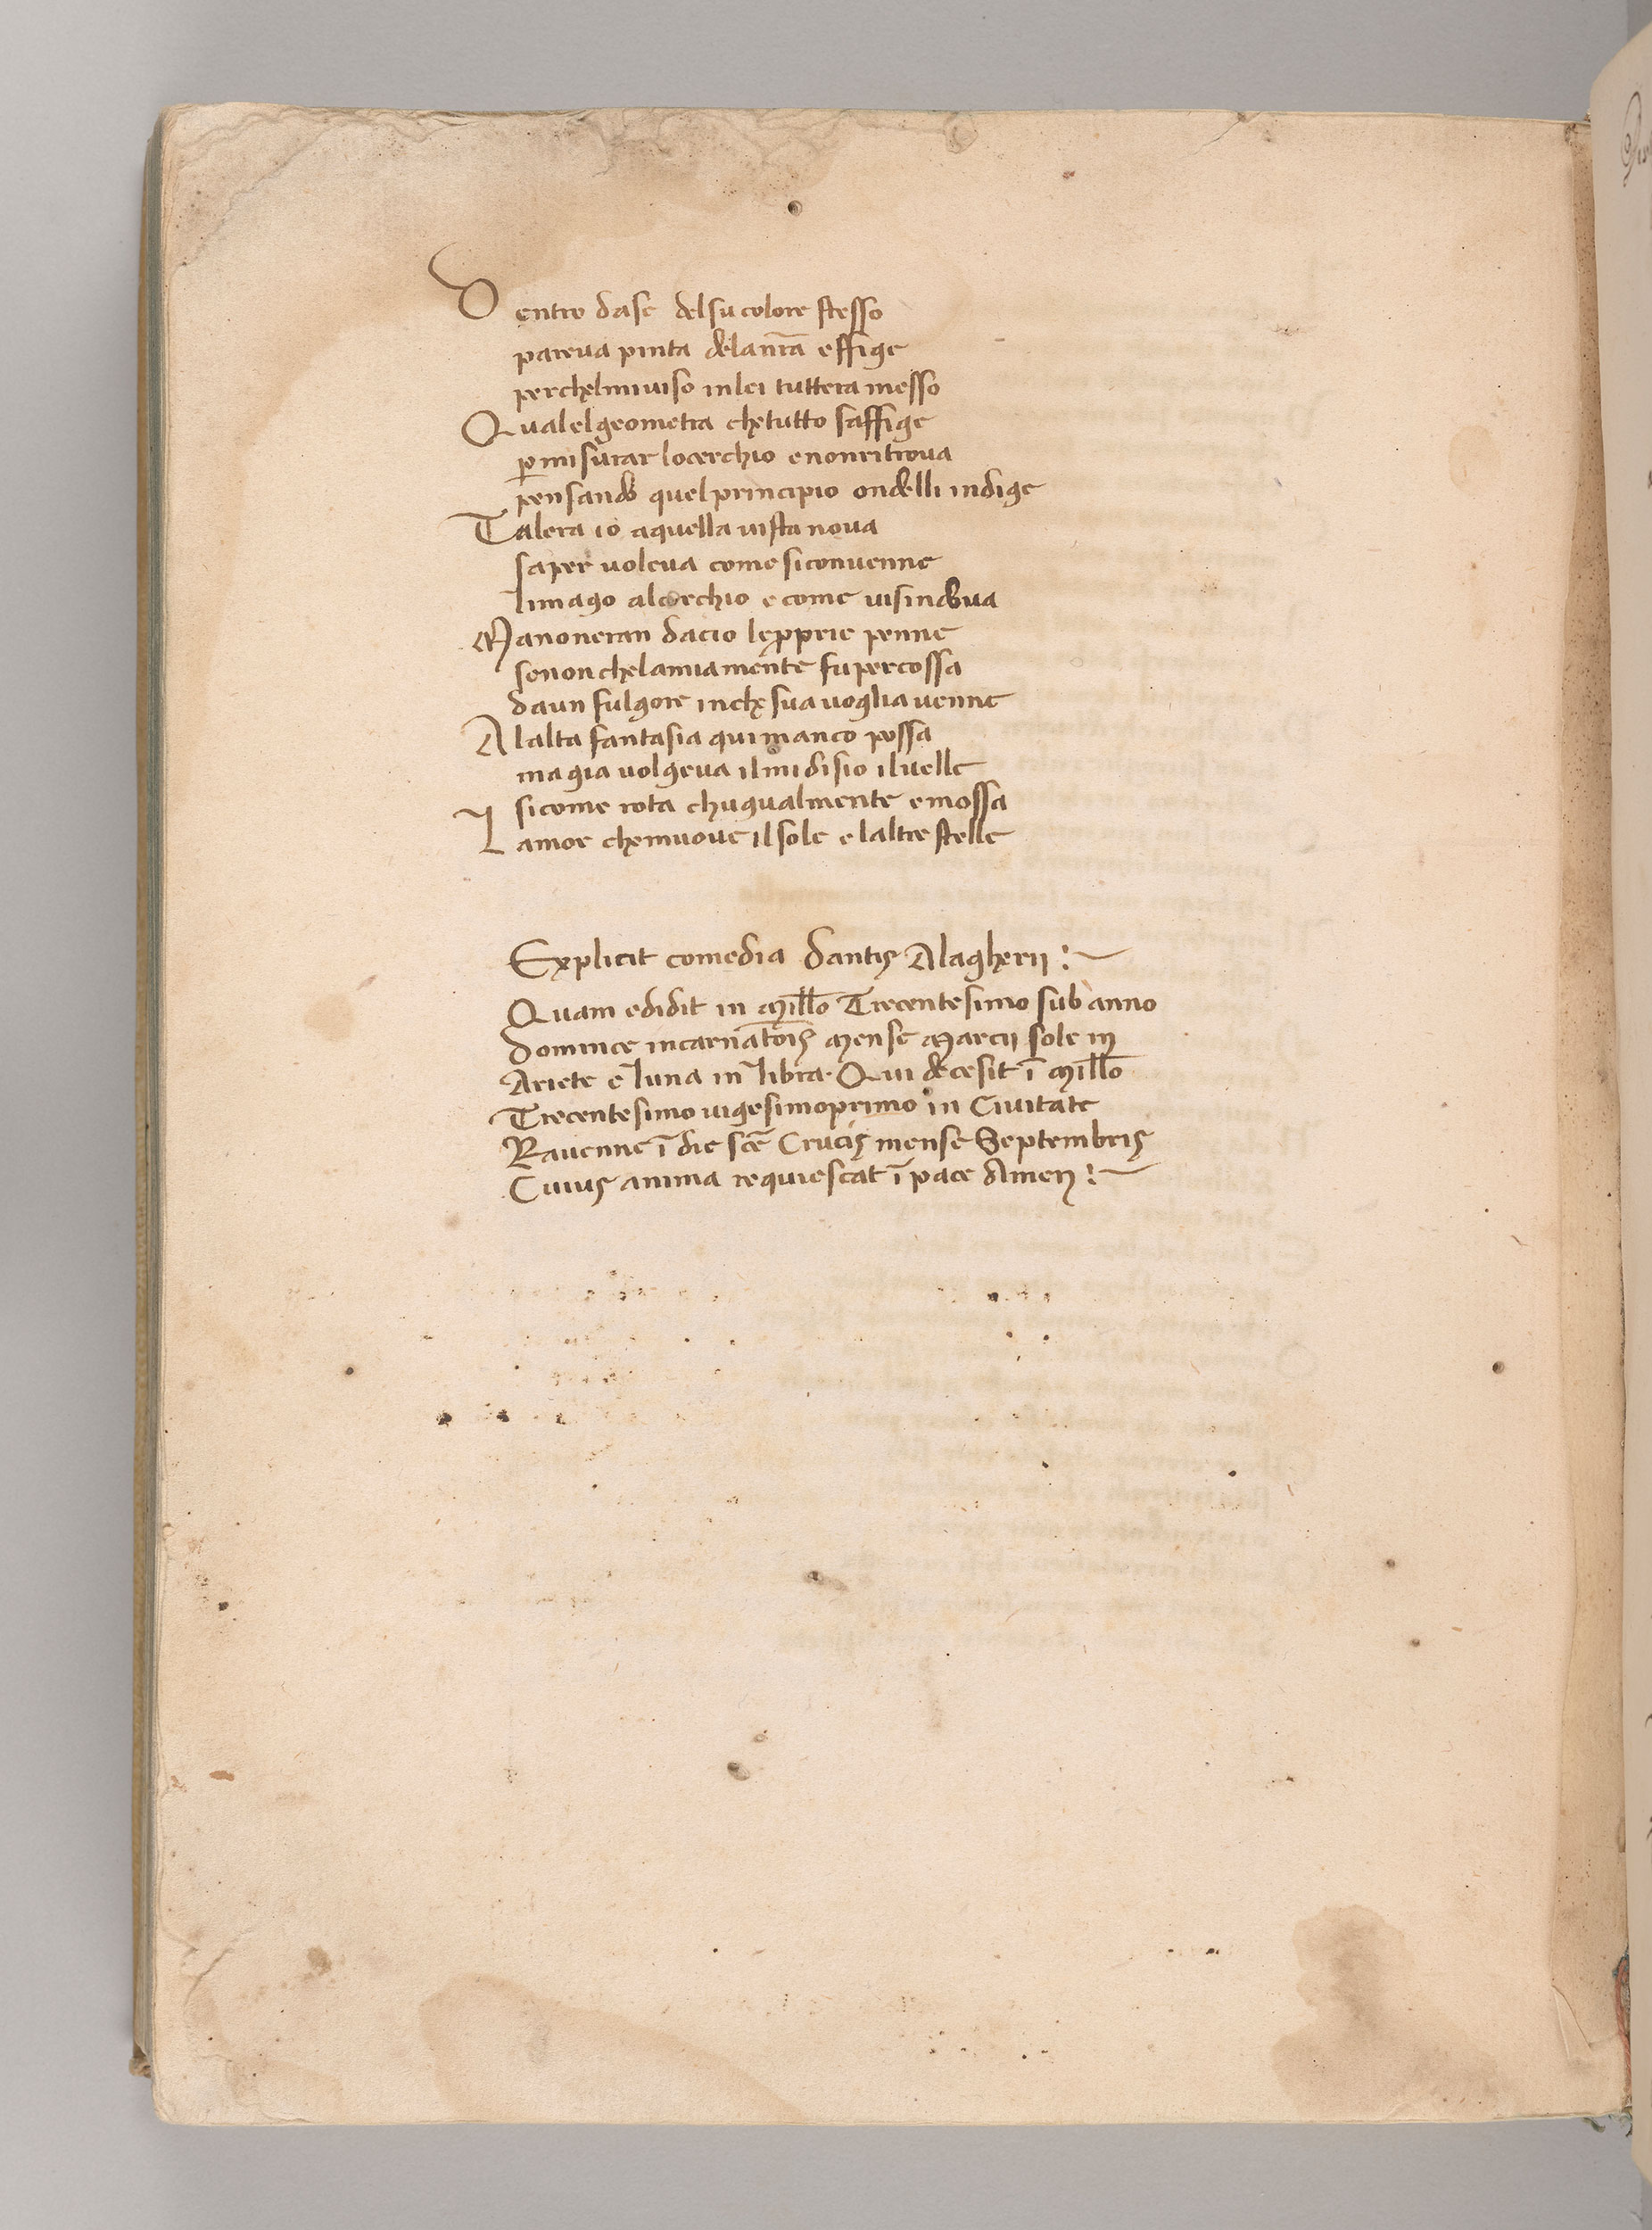 Dentro dase delsu colore stesso
pareva pinta delanr̃a effige
perchelmiviso inlei tuttera messo
Qualelgeometra chetutto saffige
ꝑmisurar locerchio enonritrova
pensando quelprincipio ondelli indige
Talera io aquella vista nova
saper voleva come siconvenne
limago alcerchio e come visindova
Manoneran dacio leꝓprie penne
senonchelamiamente fupercossa
daun fulgore inche sua voglia venne
Alalta fantasia quimanco possa
magia volgeva ilmidisio ilvelle
sicome rota chugualmente emossa
Lamor chemuove ilsole elaltre stelle
Explicit comedia dantis Alagherij :~
Quam edidit in Mill̃o Trecentesimo sub anno
dominice incarnatõis mense Marcij sole in
Ariete e luna in libra. Qui decesit ĩ Mill̃o
Trecentesimo vigesimoprimo in Civitate
Ravenne ĩ die sc̃e Crucis mense Septembris
Cuius anima requiescat ĩ pace Amen :~